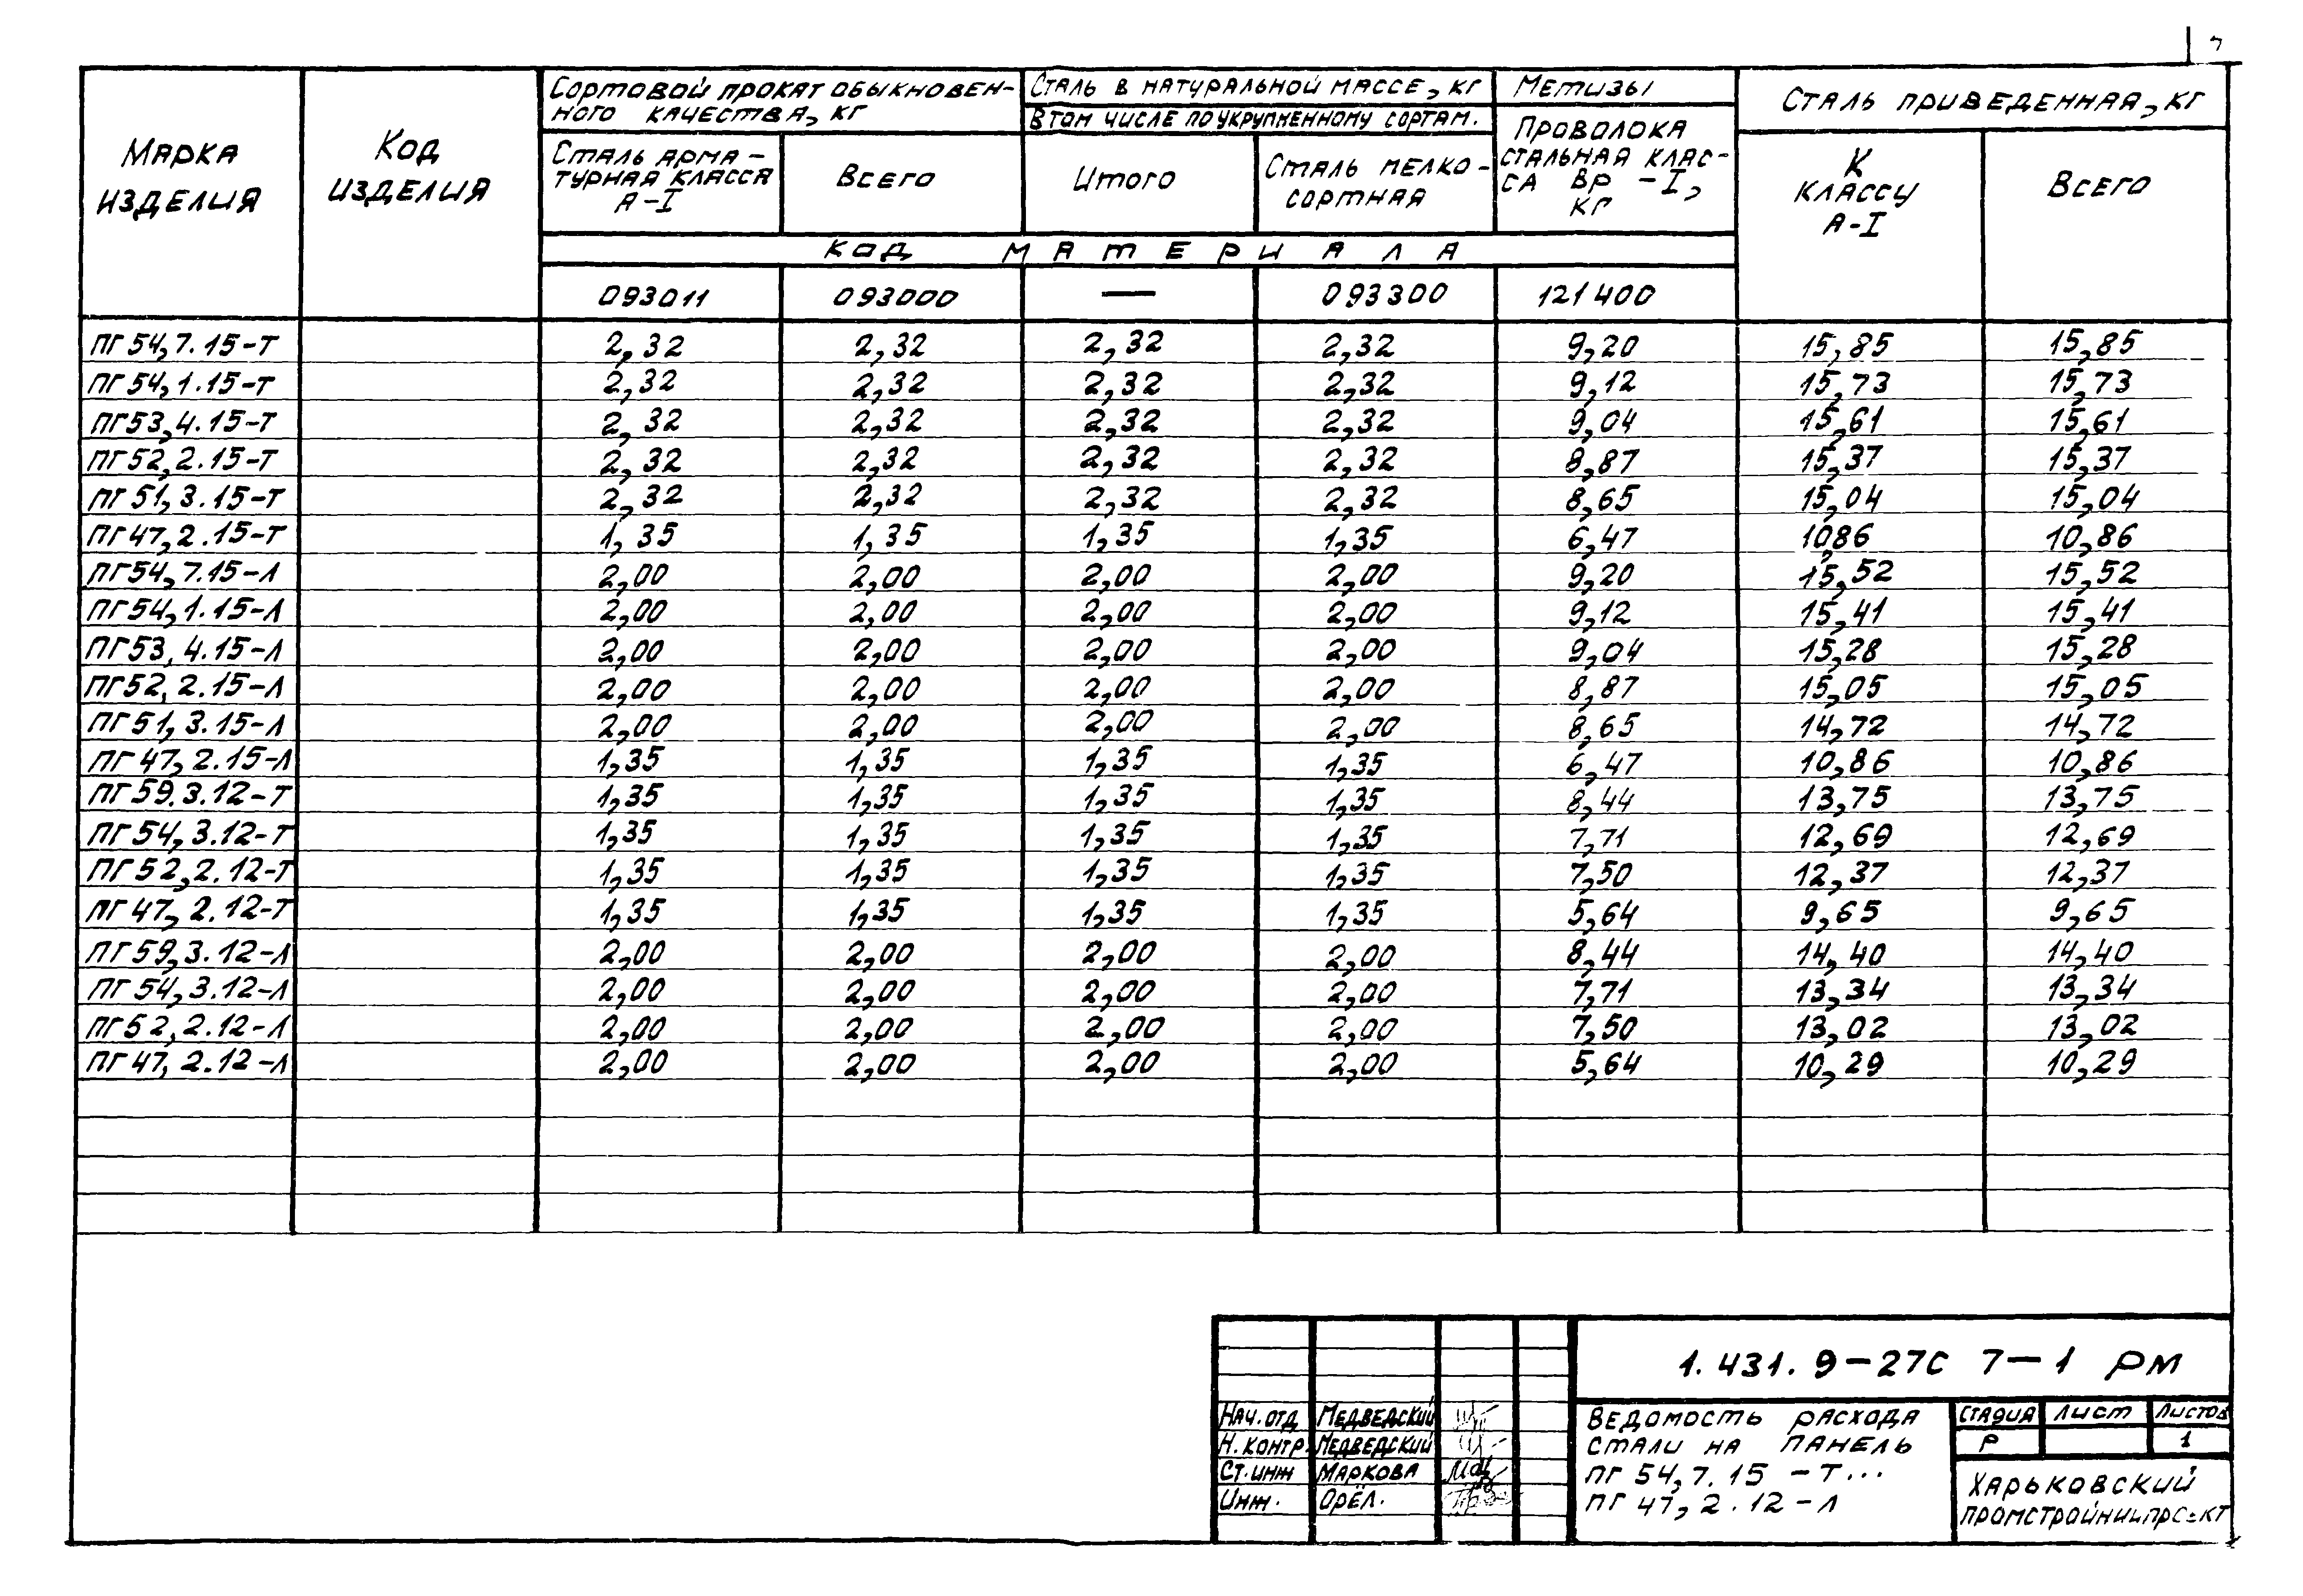 7
Марка изделия
Код изделия
Сортовой прокат обыкновен-
ного качества, кг
Сталь арма-
турная класса
А-I
Всего
Сталь в натуральной массе, кг
В том числе по укрупненному сортам.
Итого
Сталь мелко-
сортная
Метизы
Проволока
стальная клас-
са Вр-I,
кг
Сталь приведенная, кг
К
классу
А-I
Всего
Код материала
093011 093000 — 093300 121400
ПГ54,7.15-Т 2,32 2,32 2,32 2,32 9,20 15,85 15,85
ПГ54,1.15-Т 2,32 2,32 2,32 2,32 9,12 15,73 15,73
ПГ53,4.15-Т 2,32 2,32 2,32 2,32 9,04 15,61 15,61
ПГ52,2.15-Т 2,32 2,32 2,32 2,32 8,87 15,37 15,37
ПГ51,3.15-Т 2,32 2,32 2,32 2,32 8,65 15,04 15,04
ПГ47,2.15-Т 1,35 1,35 1,35 1,35 6,47 10,86 10,86
ПГ54,7.15-Л 2,00 2,00 2,00 2,00 9,20 15,52 15,52
ПГ54,1.15-Л 2,00 2,00 2,00 2,00 9,12 15,41 15,41
ПГ53,4.15-Л 2,00 2,00 2,00 2,00 9,04 15,28 15,28
ПГ52,2.15-Л 2,00 2,00 2,00 2,00 8,87 15,05 15,05
ПГ51,3.15-Л 2,00 2,00 2,00 2,00 8,65 14,72 14,72
ПГ47,2.15-Л 1,35 1,35 1,35 1,35 6,47 10,86 10,86
ПГ59.3.12-Т 1,35 1,35 1,35 1,35 8,44 13,75 13,75
ПГ54,3.12-Т 1,35 1,35 1,35 1,35 7,71 12,69 12,69
ПГ52,2.12-Т 1,35 1,35 1,35 1,35 7,50 12,37 12,37
ПГ47,2.12-Т 1,35 1,35 1,35 1,35 5,64 9,65 9,65
ПГ59,3.12-Л 2,00 2,00 2,00 2,00 8,44 14,40 14,40
ПГ54,3.12-Л 2,00 2,00 2,00 2,00 7,71 13,34 13,34
ПГ52,2.12-Л 2,00 2,00 2,00 2,00 7,50 13,02 13,02
ПГ47,2.12-Л 2,00 2,00 2,00 2,00 5,64 10,29 10,29
1.431.9-27с 7-1 РМ
Нач.отд Медведский
Н.контр. Медведский
Ст.инж Маркова
Инж. Орёл.
Ведомость расхода
стали на панель
ПГ 54,7.15-Т...
ПГ 47,2.12-Л
Стадия Лист Листов
Р 1
Харьковский
Промстройниипроект